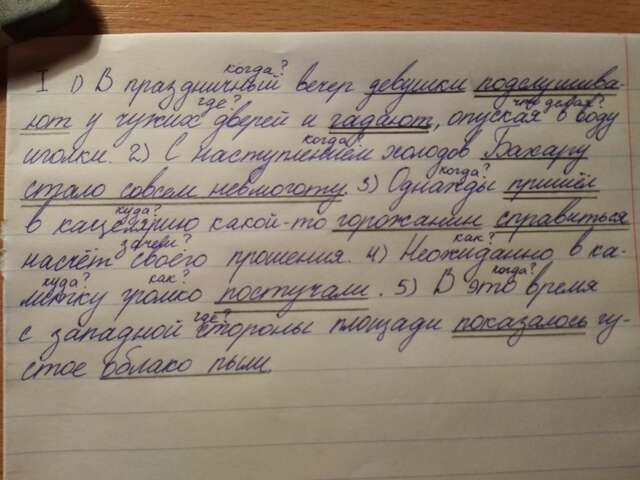 когда?
I 1) В праздничный вечер девушки подслушива-
где? что делая?
ют у чужих дверей и гадают, опуская в воду
когда?
иголки. 2) С наступлением холодов Бахару
когда?
стало совсем невмоготу. 3) Однажды пришёл
куда?
в канцелярию какой-то горожанин справиться
зачем? как?
насчёт своего прошения. 4) Неожиданно в ка-
куда? как? когда?
литку громко постучали. 5) В это время
где?
с западной стороны площади показалось гу-
стое облако пыли.